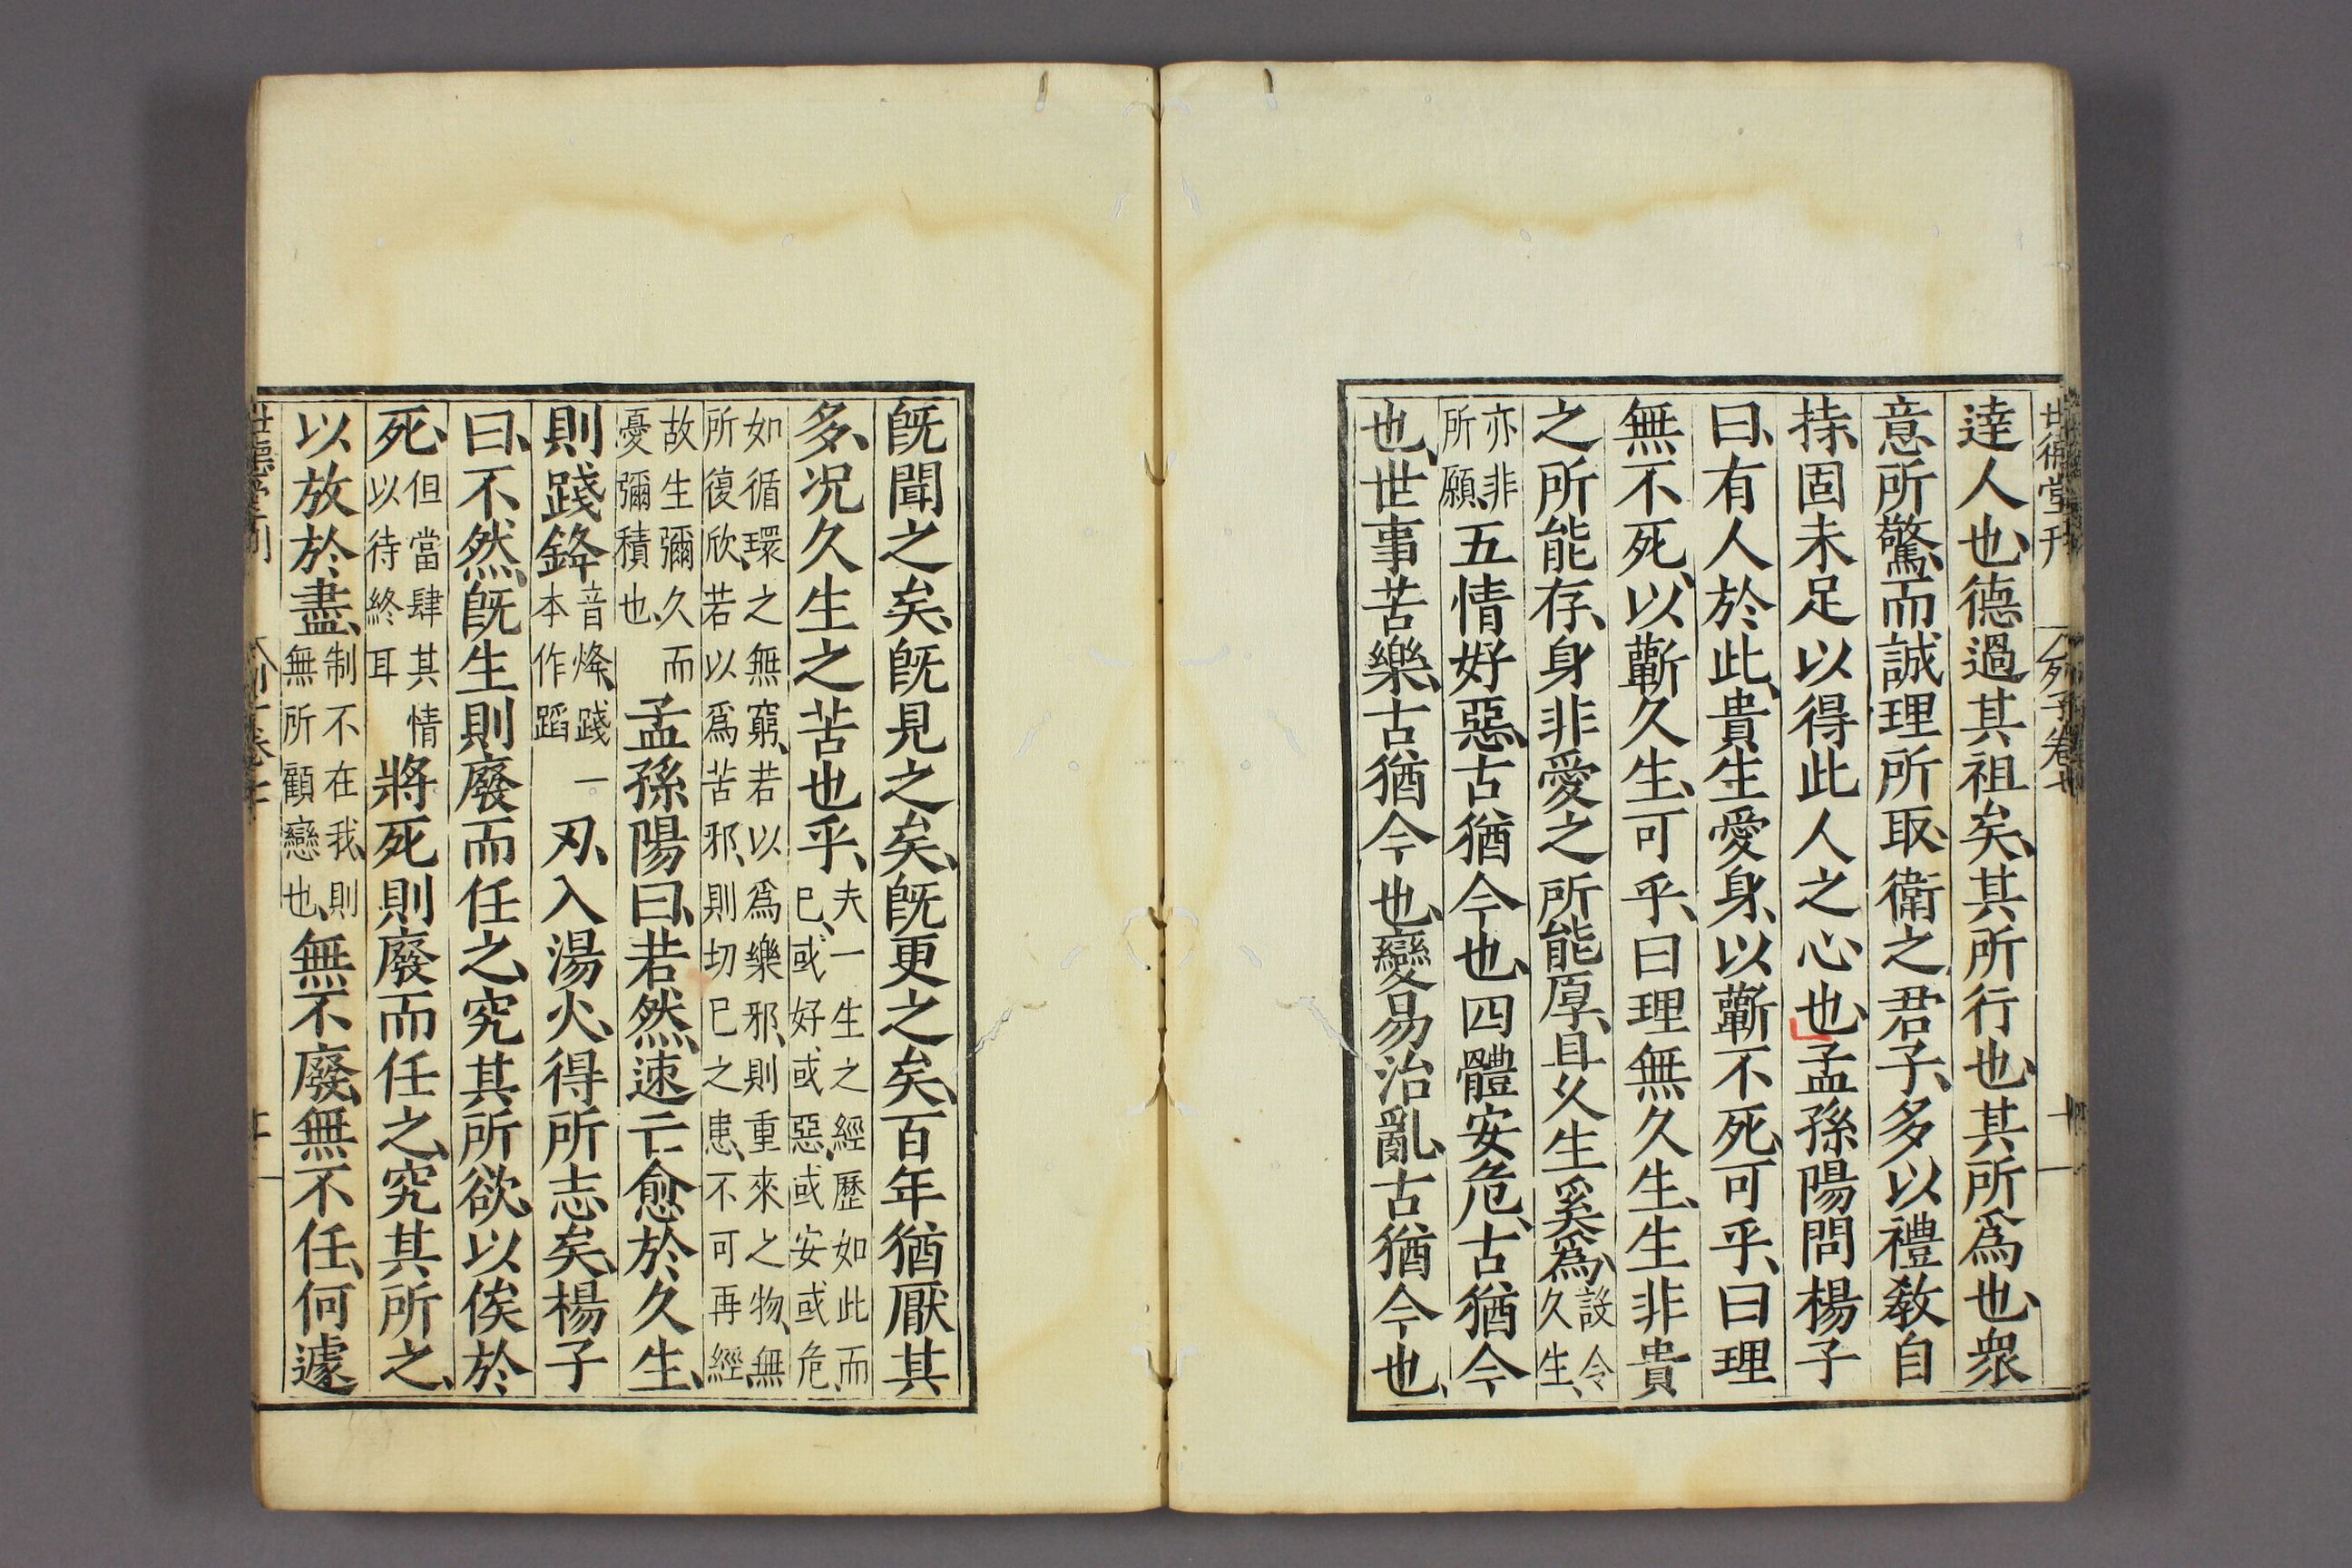 世德堂刊 列子卷七
達人也、德過其祖矣、其所行也、其所爲也、衆
意所驚、而誠理所取、衛之君子、多以禮敎自
持、固未足以得此人之心也、孟孫陽問楊子
曰、有人於此、貴生愛身、以蘄不死、可乎、曰理
無不死、以蘄久生、可乎、曰理無久生、生非貴
之所能存、身非愛之所能厚、且久生奚爲、設令久生、
亦非所願、五情好惡、古猶今也、四體安危、古猶今
也、世事苦樂、古猶今也、變易治亂、古猶今也、
旣聞之矣、旣見之矣、旣更之矣、百年猶厭其
多、况久生之苦也乎、夫一生之經歷如此而已、或好或惡、或安或危、
如循環之無窮、若以爲樂邪、則重來之物、無所復欣、若以爲苦邪、則切已之患、不可再經
故生彌久而憂彌積也、孟孫陽曰、若然、速亡愈於久生、
則踐鋒音烽、踐一本作蹈刃、入湯火、得所志矣、楊子
曰、不然、旣生則廢而任之、究其所欲、以俟於
死、但當肆其情以待終耳將死則廢而任之、究其所之、
以放於盡、制不在我、則無所顧戀也、無不廢、無不任、何遽
世德堂刊 列子卷七